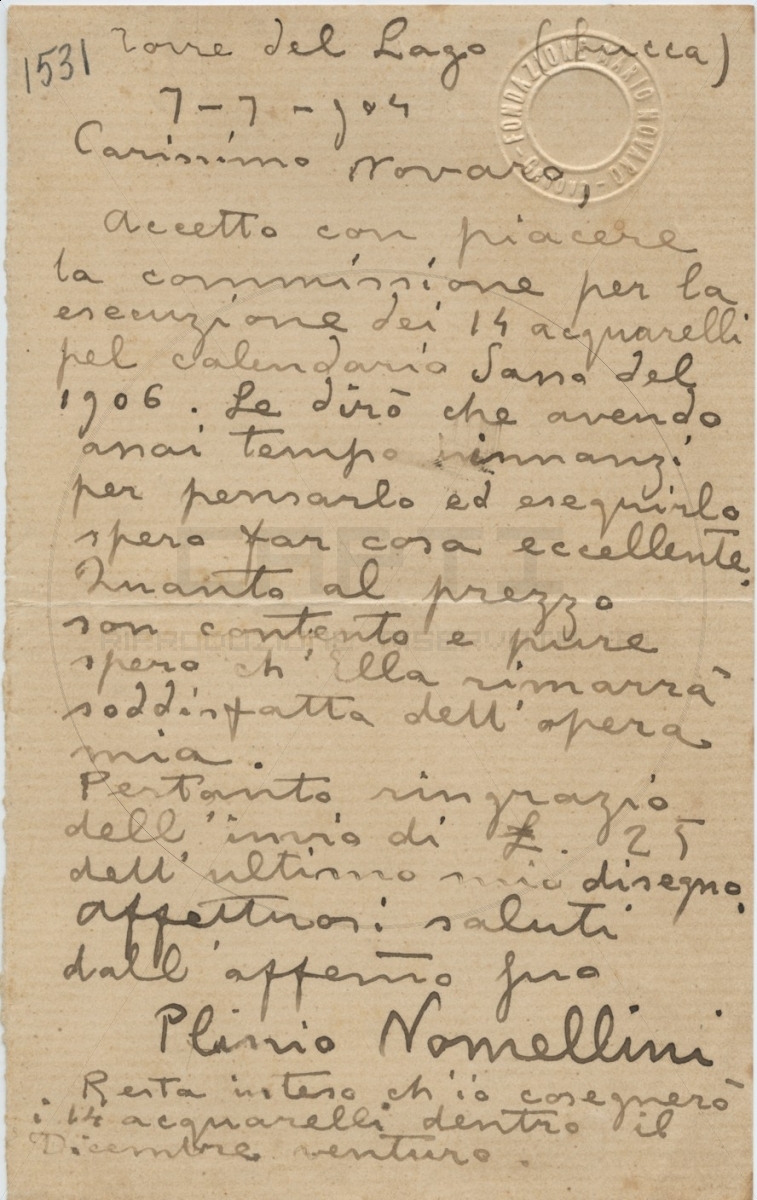 1531
Torre del Lago (Lucca)
7-7-904
Carissimo Novaro,
FONDAZIONE MARIO NOVARO
Accetto con piacere
la commissione per la
esecuzione dei 14 acquarelli
pel calendario Sasso del
1906. Le dirò che avendo
assai tempo innanzi
per pensarlo ed eseguirlo
spero far cosa eccellente.
Quanto al prezzo
son contento e pure
spero ch'Ella rimarrà
soddisfatta dell'opera
mia.
Pertanto ringrazio
dell'invio di £. 25
dell'ultimo mio disegno.
Affettuosi saluti
dall'affemo suo
Plinio Nomellini
Resta inteso ch'io cosegnerò
i 14 acquarelli dentro il
Dicembre venturo.